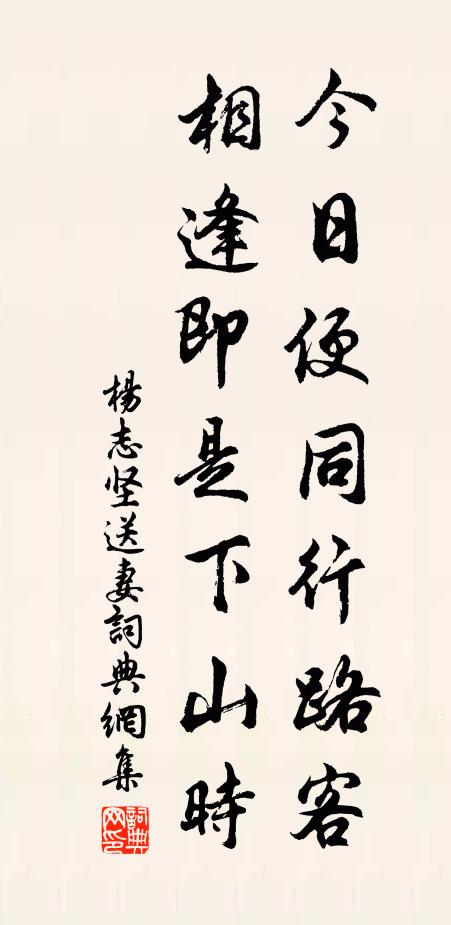 今日便同行路客
相逢即是下山時
楊志坚送妻詞典網集
詞典网印